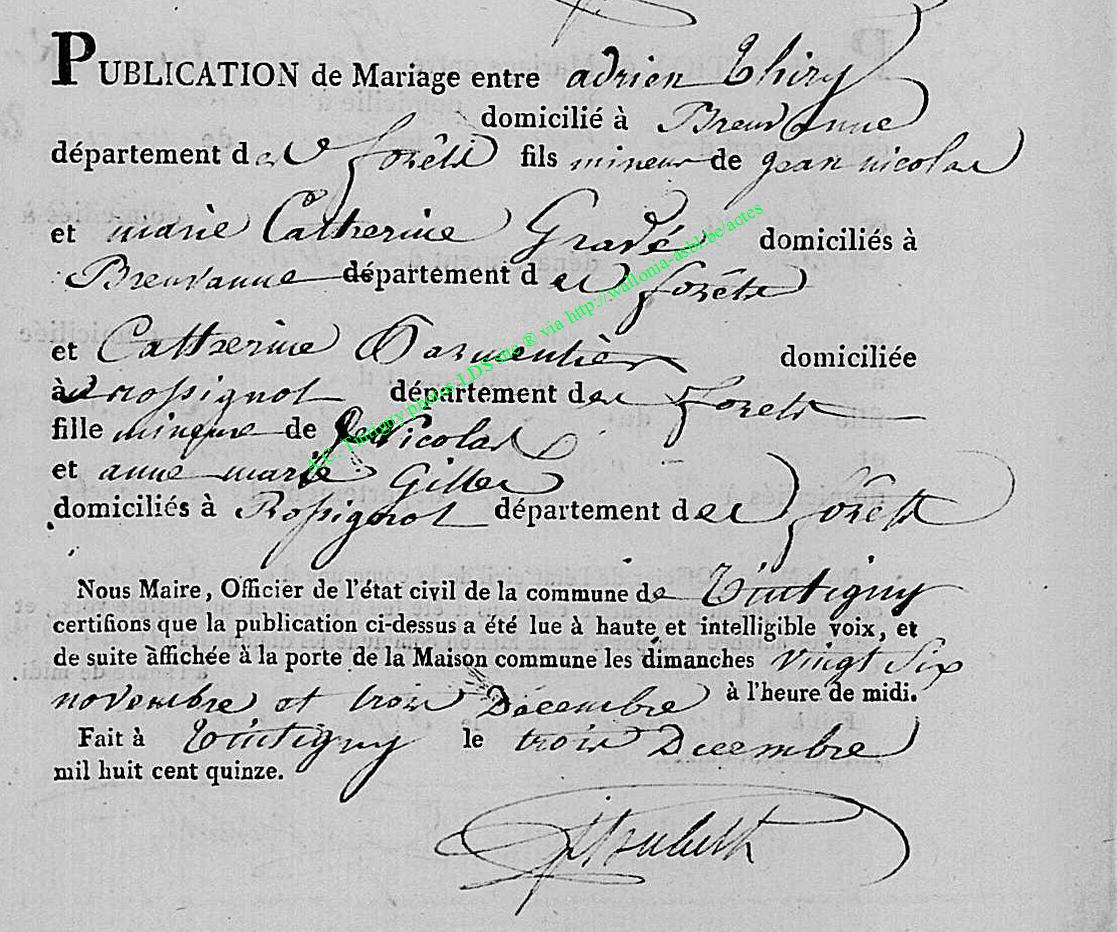 PUBLICATION de Mariage entre adrien Thiry
domicilié à Breuvanne
département des forêts fils mineur de jean nicolas
et marie Catherine Gravé domiciliés à
Breuvanne département des forêts
et Catherine Parmentier domiciliée
à rossignol département des forets
fille mineure de Nicolas
et anne marie Gilles
domiciliés à Rossignol département des forêts
Nous Maire, Officier de l'état civil de la commune de Tintigny
certifions que la publication ci-dessus a été lue à haute et intelligible voix, et
de suite affichée à la porte de la Maison commune les dimanches vingt six
novembre et trois Décembre à l'heure de midi.
Fait à Tintigny le trois Decembre
mil huit cent quinze.
A.C. Tintigny photos LDS site ® via http://wallonia-asbl.be/actes